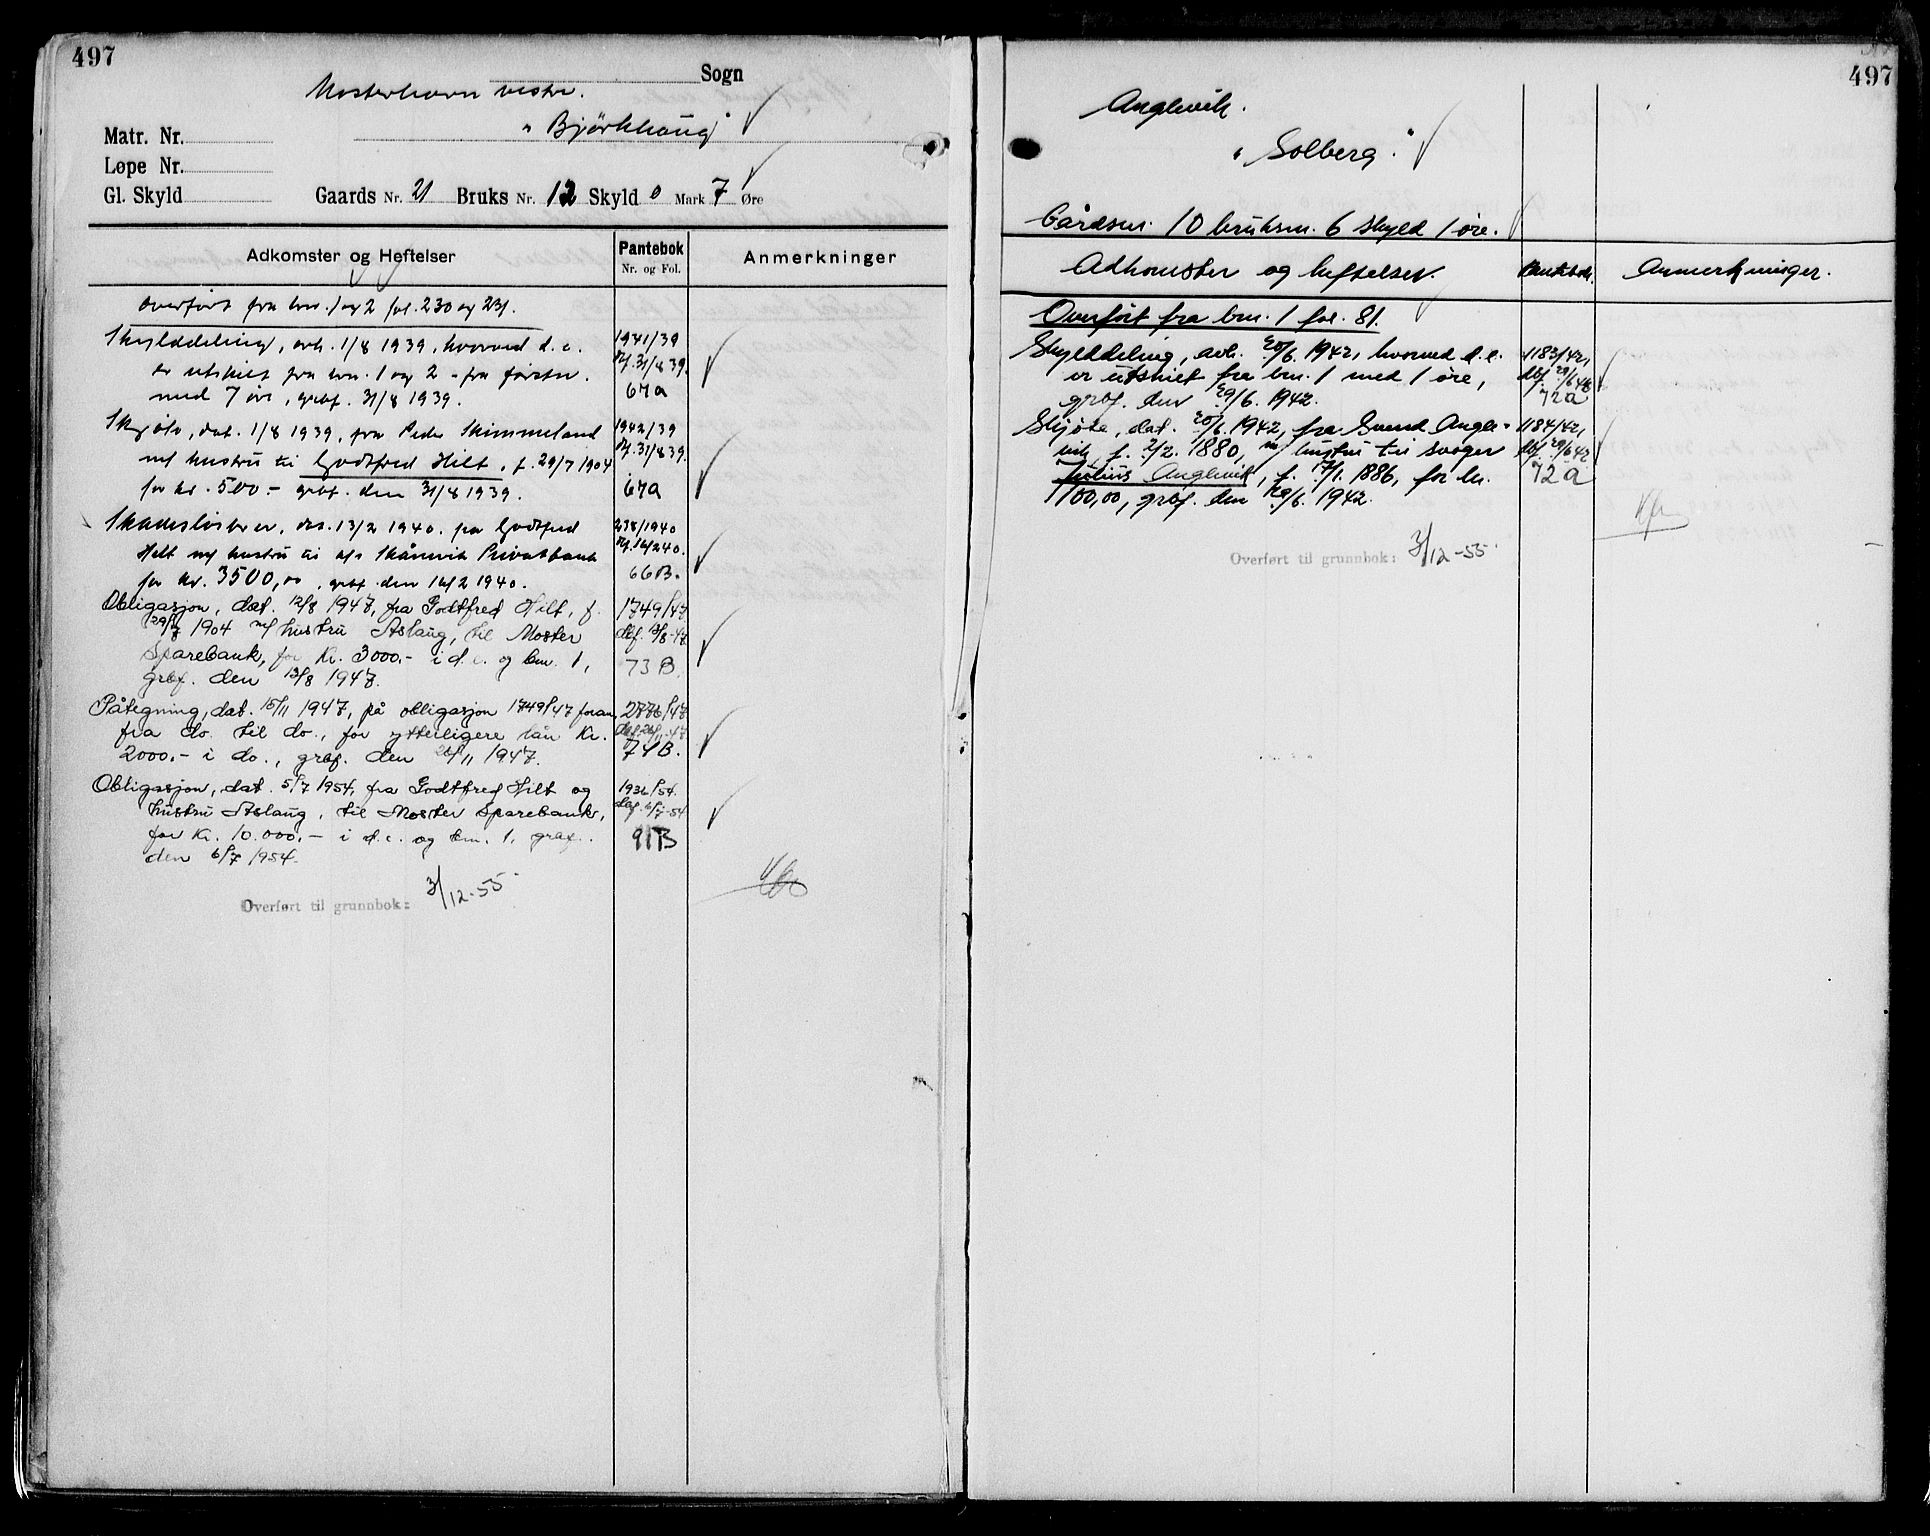 497
Sogn
Mosterhavn vestre.
"Bjørkhaug"
Matr. Nr.
Løpe Nr.
Gl. Skyld Gaards Nr. 21 Bruks Nr. 12 Skyld 0 Mark 7 Øre
Adkomster og Heftelser Pantebok Nr. og Fol. Anmerkninger
Overført fra bnr. 1 og 2 fol. 230 og 231.
Skylddeling, avh. 1/8 1939, hvorved d. e. 1941/39
er utskilt fra bnr. 1 og 2 - fra først nr. 31/8 39.
med 7 øre, grbf. 31/8 1939. 67a
Skjøte, dat. 1/8 1939, fra Peder Skimmeland 1942/39
m/ hustru til Godtfred Hilt, f. 29/7 1904 31/8 39.
for kr. 500.- grbf. den 31/8 1939. 67a
Skadesløsbrev, dat. 13/2 1940. fra Godtfred 238/1940
Hilt m/ hustru til A/s Skånevik Privatbank 16/2 40.
for kr. 3500,00, grbf. den 16/2 1940. 66B.
Obligasjon, dat. 12/8 1947, fra Godtfred Hilt, f. 1749/47
29/7 1904 m/ hustru Aslaug, til Moster dbf. 13/8-47
Sparebank, for Kr. 3000.- i d. e. og bnr. 1, 73 B.
grbf. den 13/8 1947.
Påtegning, dat. 15/11 1947, på obligasjon 1749/47 foran, 2776/47
fra do. til do., for ytterligere lån Kr. dbf. 26/11-47
2000.- i do., grbf. den 26/11 1947. 74B.
Obligasjon, dat. 5/7 1954, fra Godtfred Hilt og 1936/54.
hustru Aslaug, til Moster Sparebank, dbf. 6/7-54
for Kr. 10.000.- i d. e. og bnr. 1, grbf. 91B
den 6/7 1954.
Overført til grunnbok: 3/12-55
497
Anglevik.
"Solberg."
Gårdsnr. 10 bruksnr. 6 skyld 1 øre.
Adkomster og heftelser. Pantebok. Anmerkninger.
Overført fra bnr. 1 fol. 81.
Skylddeling, avh. 20/6. 1942, hvorved d. e. 1183/42,
er utskilt fra bnr. 1 med 1 øre, dbf. 29/6 42
grbf. den 29/6. 1942. 72a
Skjøte, dat. 20/6. 1942, fra Svend Angle- 1184/42,
vik, f. 2/2. 1880, m/ hustru til svoger dbf. 29/6 42
Julius Anglevik, f. 17/1. 1886, for kr. 72a
1100,00, grbf. den 29/6. 1942.
Overført til grunnbok: 3/12-55